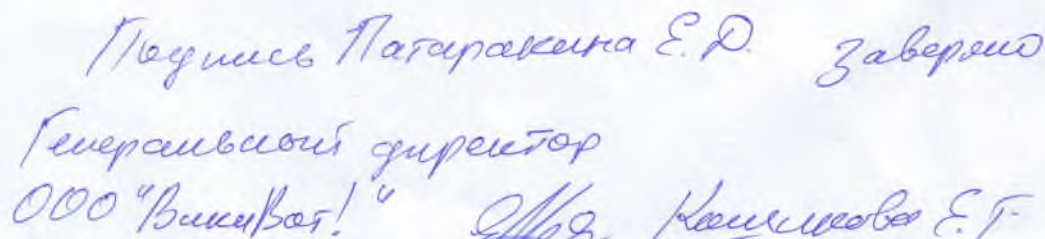 Подпись Патаракина Е.Д. заверяю
Генеральный директор
ООО "ВикиВот!" Е.Г.